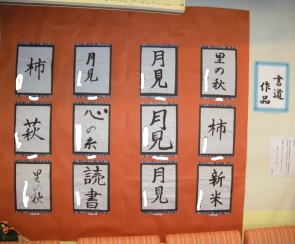 書道
作品
里の秋
月見
月見
柿
柿
月見
心の糸
萩
新米
月見
読書
里の秋